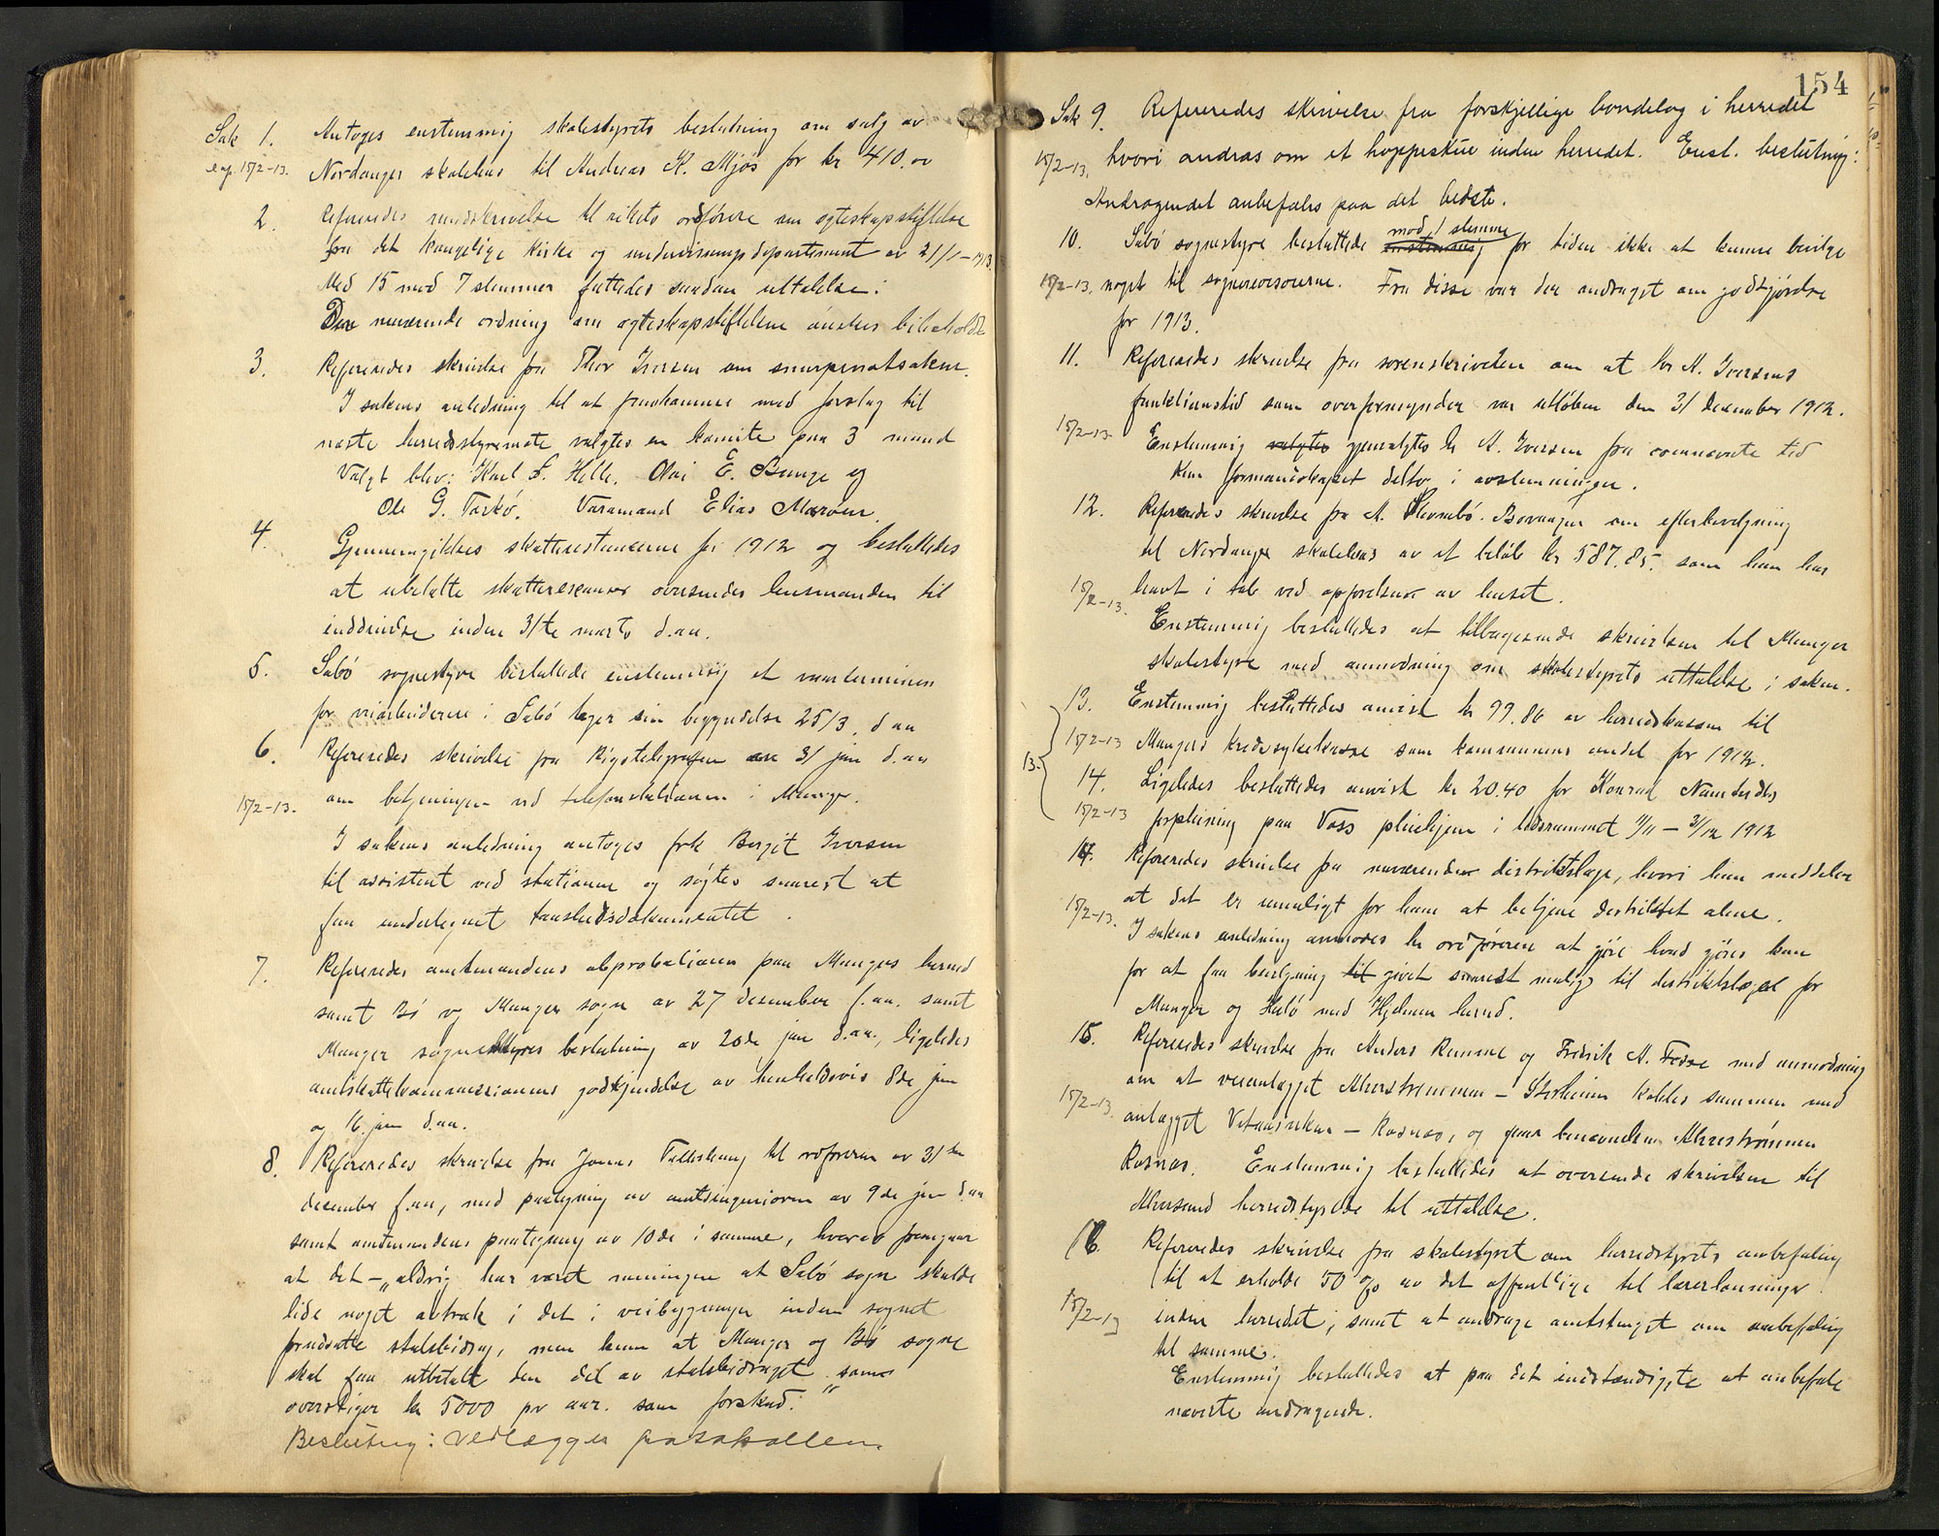 Sak 1. Antoges enstemmig skolestyrets beslutning om salg av
exp. 15/2-13. Nordanger skolehus til Andreas K. Mjøs for kr 410.00
2. Refereredes rundskrivelse til rikets ordförere om egteskapsstiftelse
fra det kongelige Kirke og undervisningsdepartement av 21/1-1913.
Med 15 mod 7 stemmer fattedes saadan uttalelse:
Den nuværende ordning om egteskapsstiftelse önskes bibeholdt
3. Refereredes skrivelse fra Thor Iversen om snurpenotsaken.
I sakens anledning til at fremkomme med forslag til
næste herredsstyremøte valgtes en komite paa 3 mand
Valgt blev: Karl L. Helle, Olai E. Bunge og
Ole G. Toskö. Varamand Elias Marøen.
4. Gjennemgikkes skatterestancerne for 1912 og besluttedes
at ubetalte skatterestancer oversendes lensmanden til
inddrivelse inden 31te marts d.aa.
5. Sæbö sognestyre besluttede enstemmig at vaarterminen
for veiarbeiderne i Sæbö tager sin begyndelse 25/3. d.aa
6. Refereredes skrivelse fra Rigstelegrafen av 31 jan d.aa
15/2-13. om betjeningen ved telefonstationen i Manger.
I sakens anledning antoges frk Borgit Iversen
til assistent ved stationen og søgtes snarest at
faa undertegnet taushedsdokumentet.
7. Refereredes amtmandens approbationer paa Mangers herred
samt Bö og Manger sogne av 27 desember f.aa. samt
Manger sognestyres beslutning av 20de jan d.aa., ligeledes
amtskattekommissionens godkjendelse av henholdsvis 8de jan
og 16. jan d.aa.
8. Refereredes skrivelse fra Jonas til ordføreren av 31te
december f.aa, med paategning av amtsingeniøren av 9de jan d.aa
samt amtmandens paategning av 10de i samme, hvorav fremgaar
at det – „aldrig har været meningen at Sæbö sogn skulde
lide noget avtræk i det i veibygninger inden sognet
forudsatte statsbidrag, men kun at Manger og Bö sogne
skal faa utbetalt den del av statsbidraget som
overstiger kr 5000 pr aar. som forskud."
Beslutning: vedlægges protokollen.
154
Sak 9. Refereredes skrivelse fra forskjellige bondelag i herredet
15/2-13. hvori andras om et hoppeskue inden herredet. Enst. beslutning:
Andragendet anbefales paa det bedste.
10. Sæbö sognestyre besluttede enstemmig mod 1 stemme for tiden ikke at kunne bevilge
15/2-13. noget til sognerevisorerne. Fra disse var der andraget om godtgjørelse
for 1913.
11. Refereredes skrivelse fra sorenskriveren om at hr A. Iversens
funktionstid som overformynder var utløben den 31 december 1912.
15/2-13 Enstemmig valgtes gjenvalgtes hr A. Iversen fra ovennævnte tid
Kun formandskapet deltog i avstemningen.
12. Refereredes skrivelse fra A. Bovanger om efterbevilgning
til Nordanger skolehus av et beløb kr 587.85. som han har
15/2-13. havt i tab ved opførelsen av huset.
Enstemmig besluttedes at tilbagesende skrivelsen til Manger
skolestyre med anmodning om skolestyrets uttalelse i saken.
13. Enstemmig besluttedes anvist kr 99.86 av herredskassen til
15/2-13 Mangers kredssykekasse som kommunens andel for 1912.
13.
14. Ligeledes besluttedes anvist kr 20.40 for Konrad Namtvedts
15/2-13 forpleining paa Voss pleiehjem i tidsrummet 11/11 – 31/12 1912
14. Refereredes skrivelse fra nuværende distriktslæge, hvori han meddeler
at det er umuligt for ham at betjene distriktet alene.
15/2-13. I sakens anledning anmodes hr ordföreren at gjöre hvad gjöres kan
for at faa bevilgning til givet snarest mulig til distriktslæge for
Manger og Herlö med Hjelmen herred.
15. Refereredes skrivelse fra Anders Ramme og Fredrik A. Fosse med anmodning
om at veianlægget Alverströmmen – Storheim kobles sammen med
15/2-13. anlægget – Rosnæs, og faar benævnelsen Alverströmmen
Rosnæs. Enstemmig besluttedes at oversende skrivelsen til
Alversund herredsstyre til uttalelse.
16. Refereredes skrivelse fra skolestyret om herredsstyrets anbefaling
til at erholde 50 % av det offentlige til lærerlønninger
15/2-13 inden herredet, samt at andrage amtstinget om anbefaling
til samme.
Enstemmig besluttedes at paa det indstændigste at anbefale
nævnte andragende.